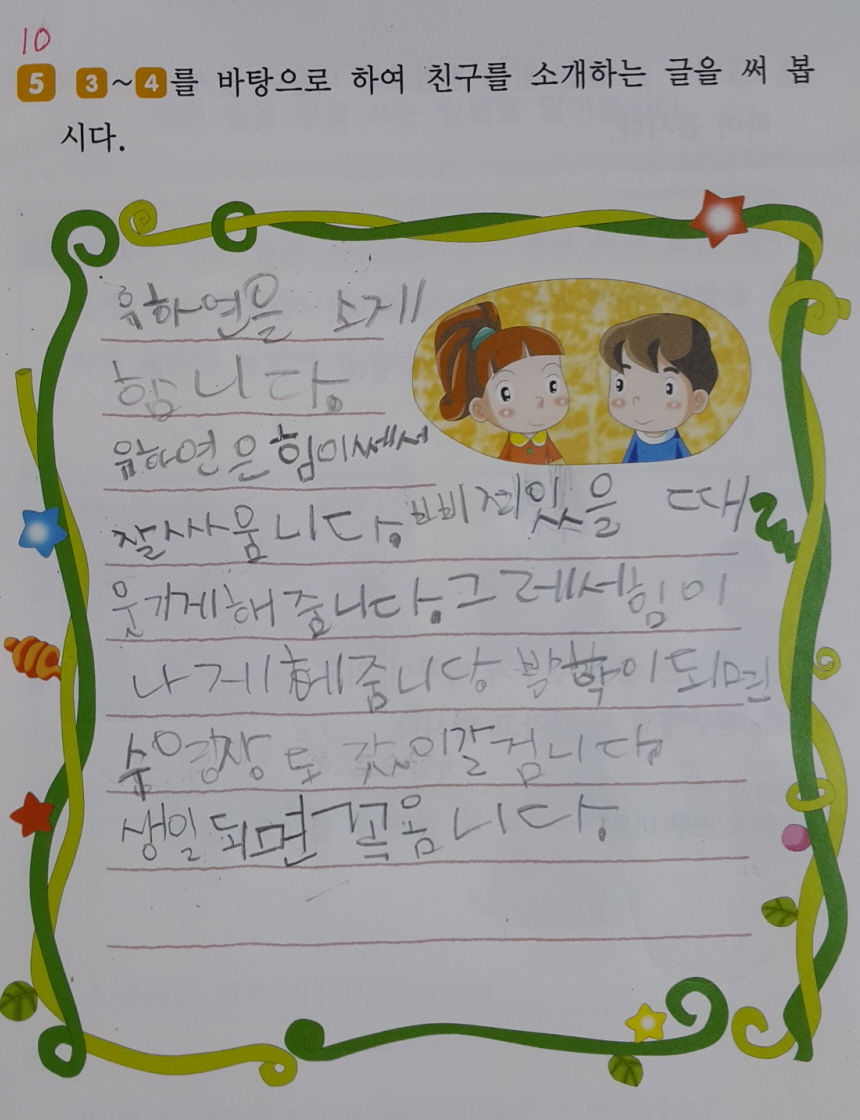 10
5 3~4를 바탕으로 하여 친구를 소개하는 글을 써 봅
시다.
유하연을 소게
합니다.
유하연은 힘이쎄서
잘싸움니다. 삐저있을 때
웃기게해줌니다. 그레세힘이
나게헤줌니당 방학이되면
숭영장 도 갔이갈검니다.
생일되면 꼭옴니다.